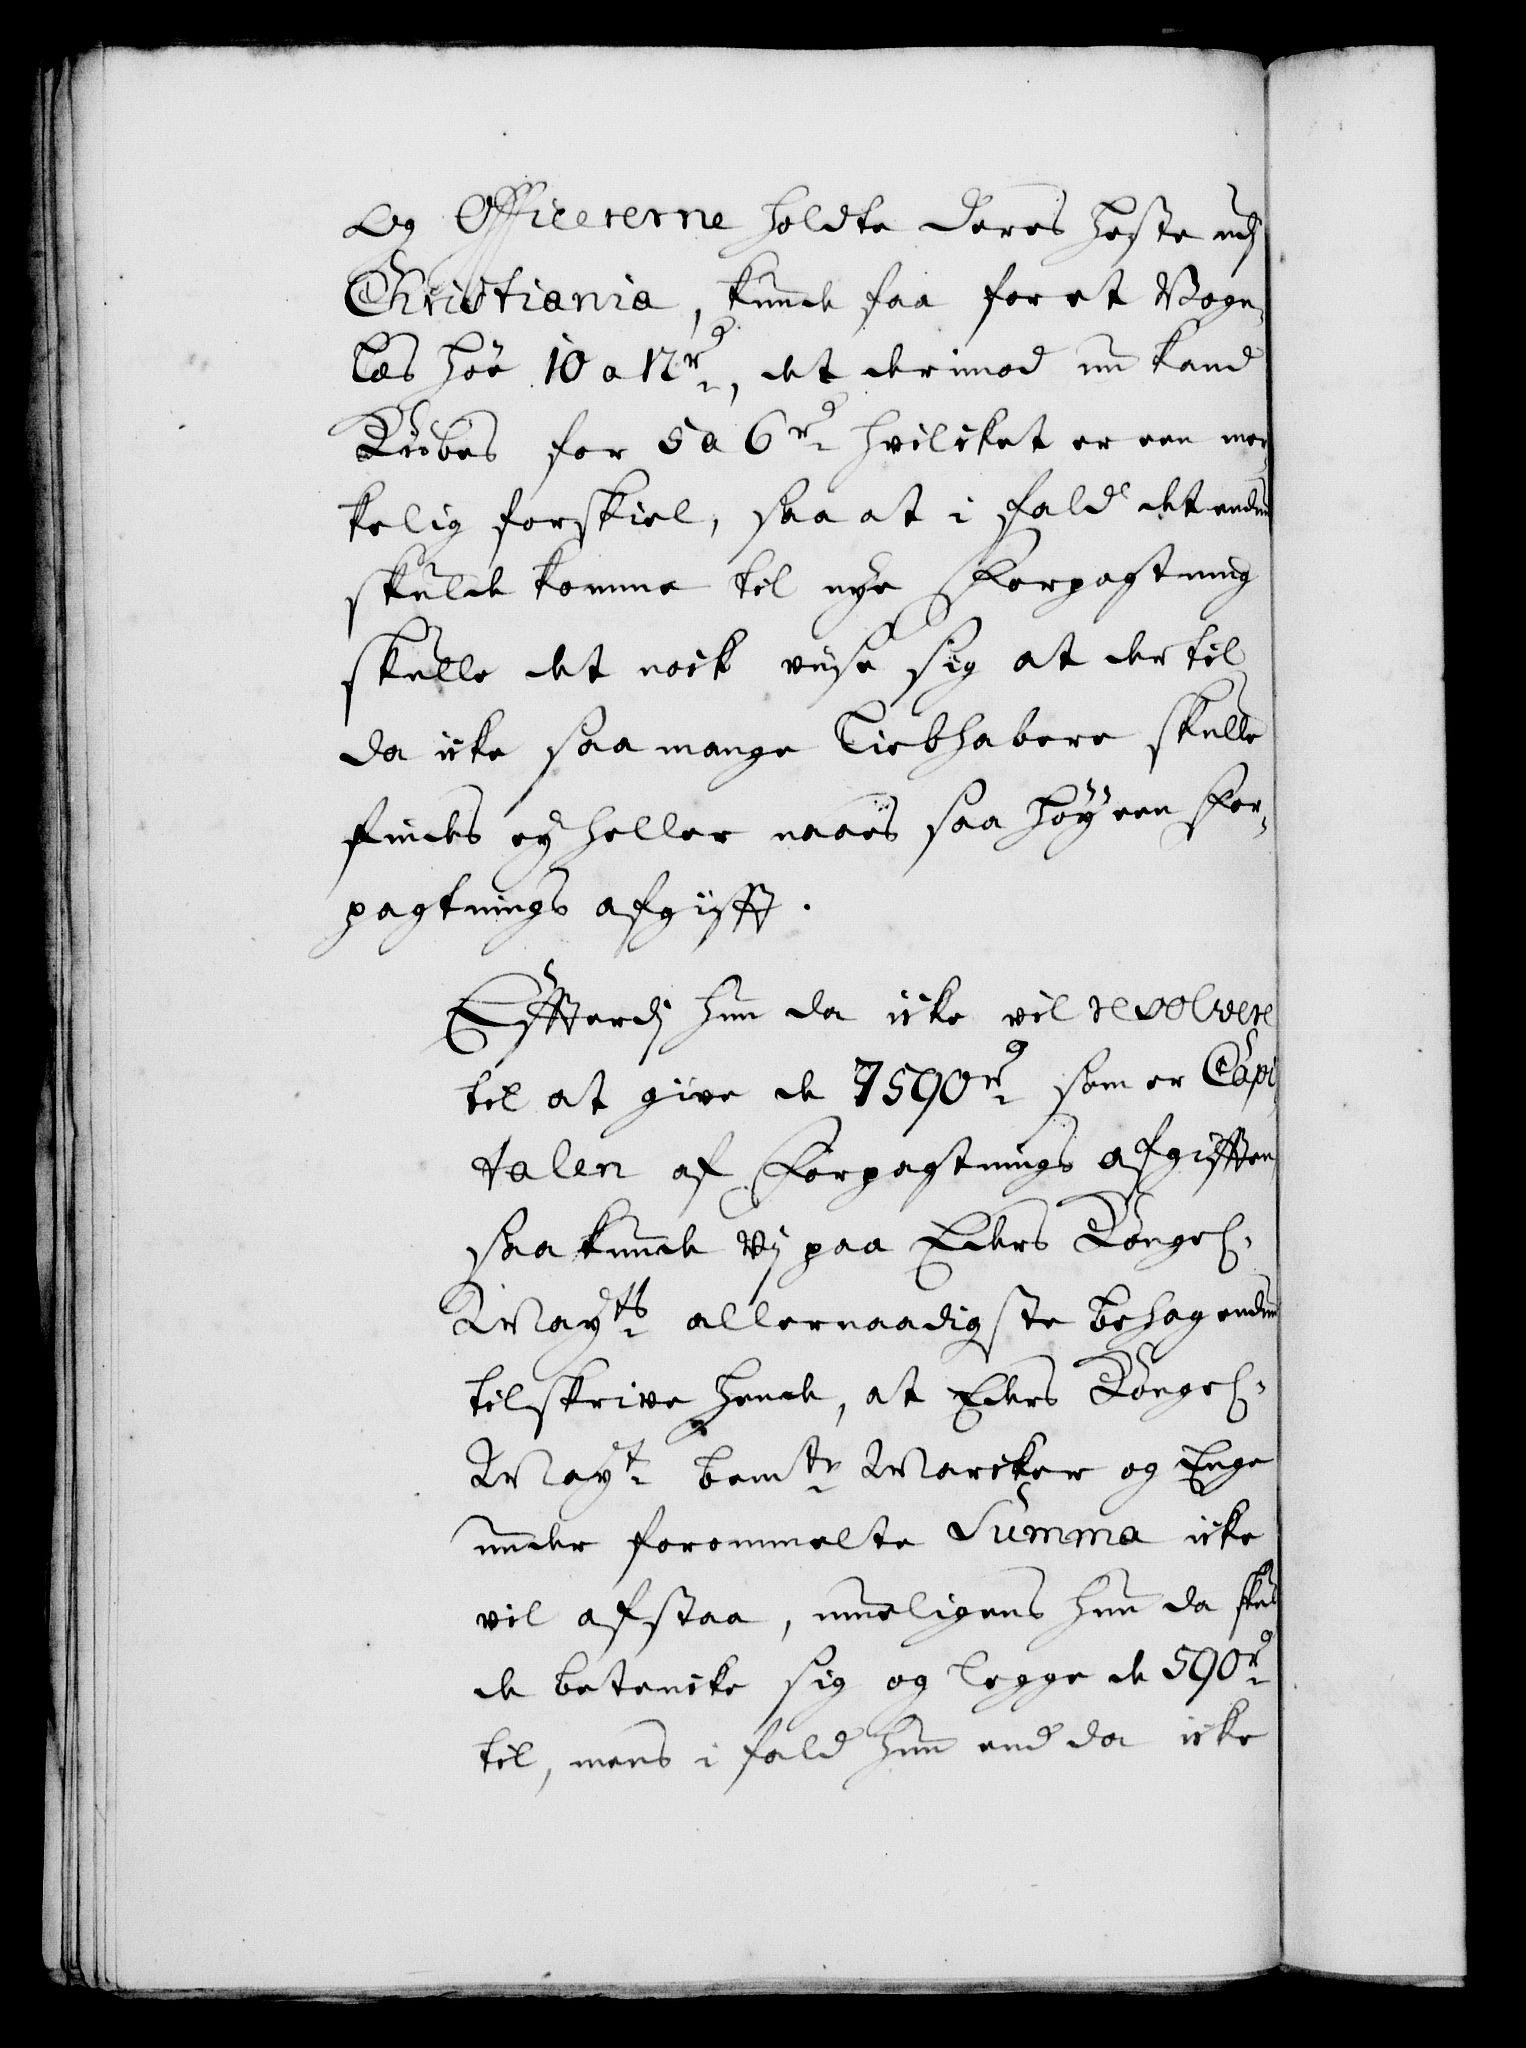 Og Officererne holdte deres heste udj
Christiania, kunde faa for et Vogn¬
læs höe 10 a 12 rd, det derimod nu kand
Kiöbes for 5 a 6 rd hvilcket er een mer¬
kelig forskiel, saa at i fald det endnu
skulde komme til nye Forpagtning
skulle det nock viise sig at der til
da icke saa mange Liebhabere skulle
findes ey heller naaes saa höy een For¬
pagtnings afgifft.
Effterdj hun da icke vil resolvere
til at give de 7590 rd som er Capi
talen af Forpagtnings afgifften
saa kunde vj paa Eders Kongel:
Mayts allernaadigste behag endnu
tilskrive hende, at Eders Kongel:
Mayt bemte Marcker og Enge
under forommelte Summa icke
vil afstaa, mueligens hun da skul
de betencke sig og legge de 590 rd
til, mens i fald hun end da icke